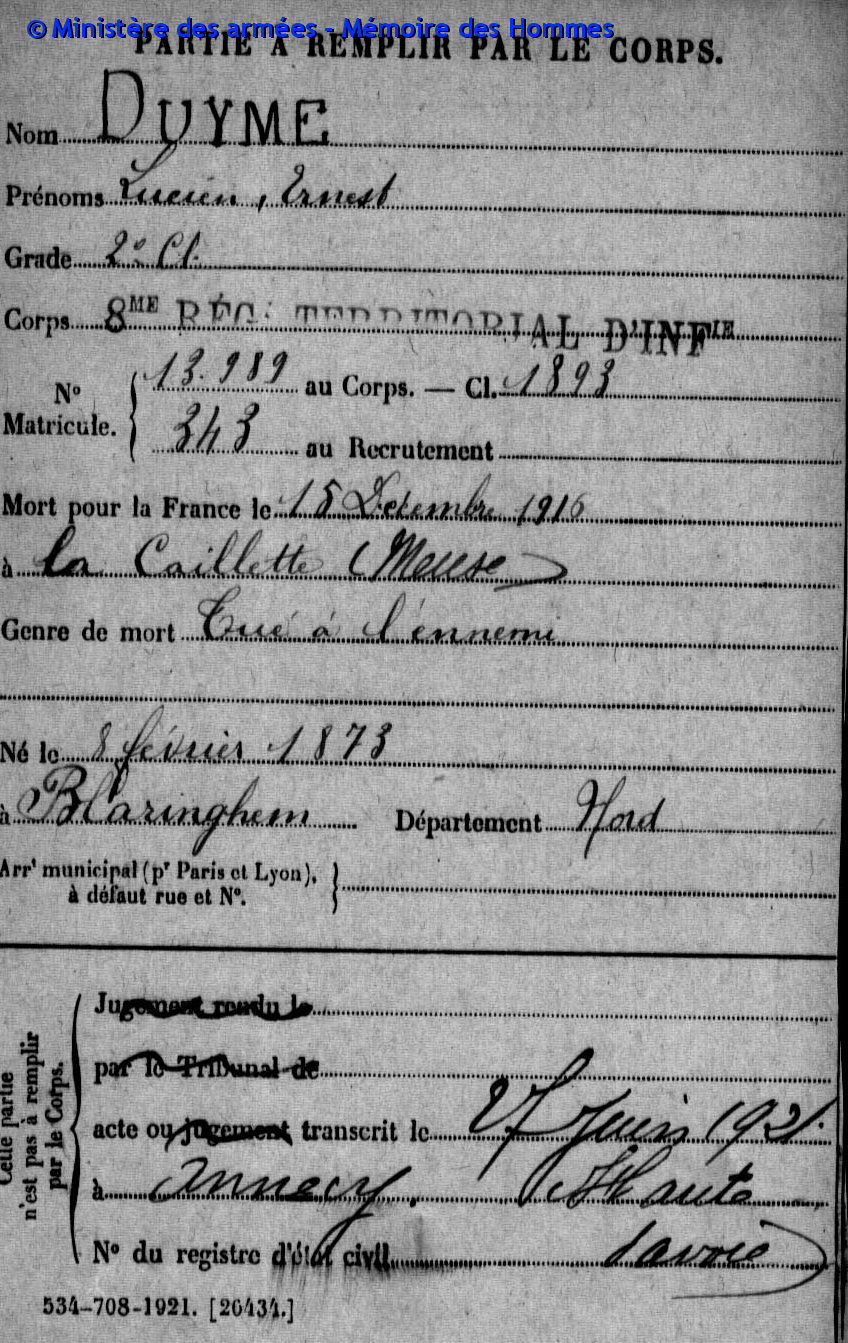 © Ministère des armées - Mémoire des Hommes
PARTIE À REMPLIR PAR LE CORPS.
Nom DUYME
Prénoms Lucien, Ernest
Grade 2e Cl.
Corps 8ME RÉG. TERRITORIAL D'INFIE
No Matricule. 13.989 au Corps. — Cl. 1893
343 au Recrutement
Mort pour la France le 15 Décembre 1916
à la Caillette (Meuse)
Genre de mort Tué à l'ennemi
Né le 8 février 1873
à Blaringhem Département Nord
Arrt municipal (pr Paris et Lyon),
à défaut rue et No.
Cette partie
n'est pas à remplir
par le Corps.
Jugement rendu le
par le Tribunal de
acte ou jugement transcrit le 27 Juin 1921.
à Annecy. (Haute
No du registre d'état civil Savoie)
534-708-1921. [26434.]